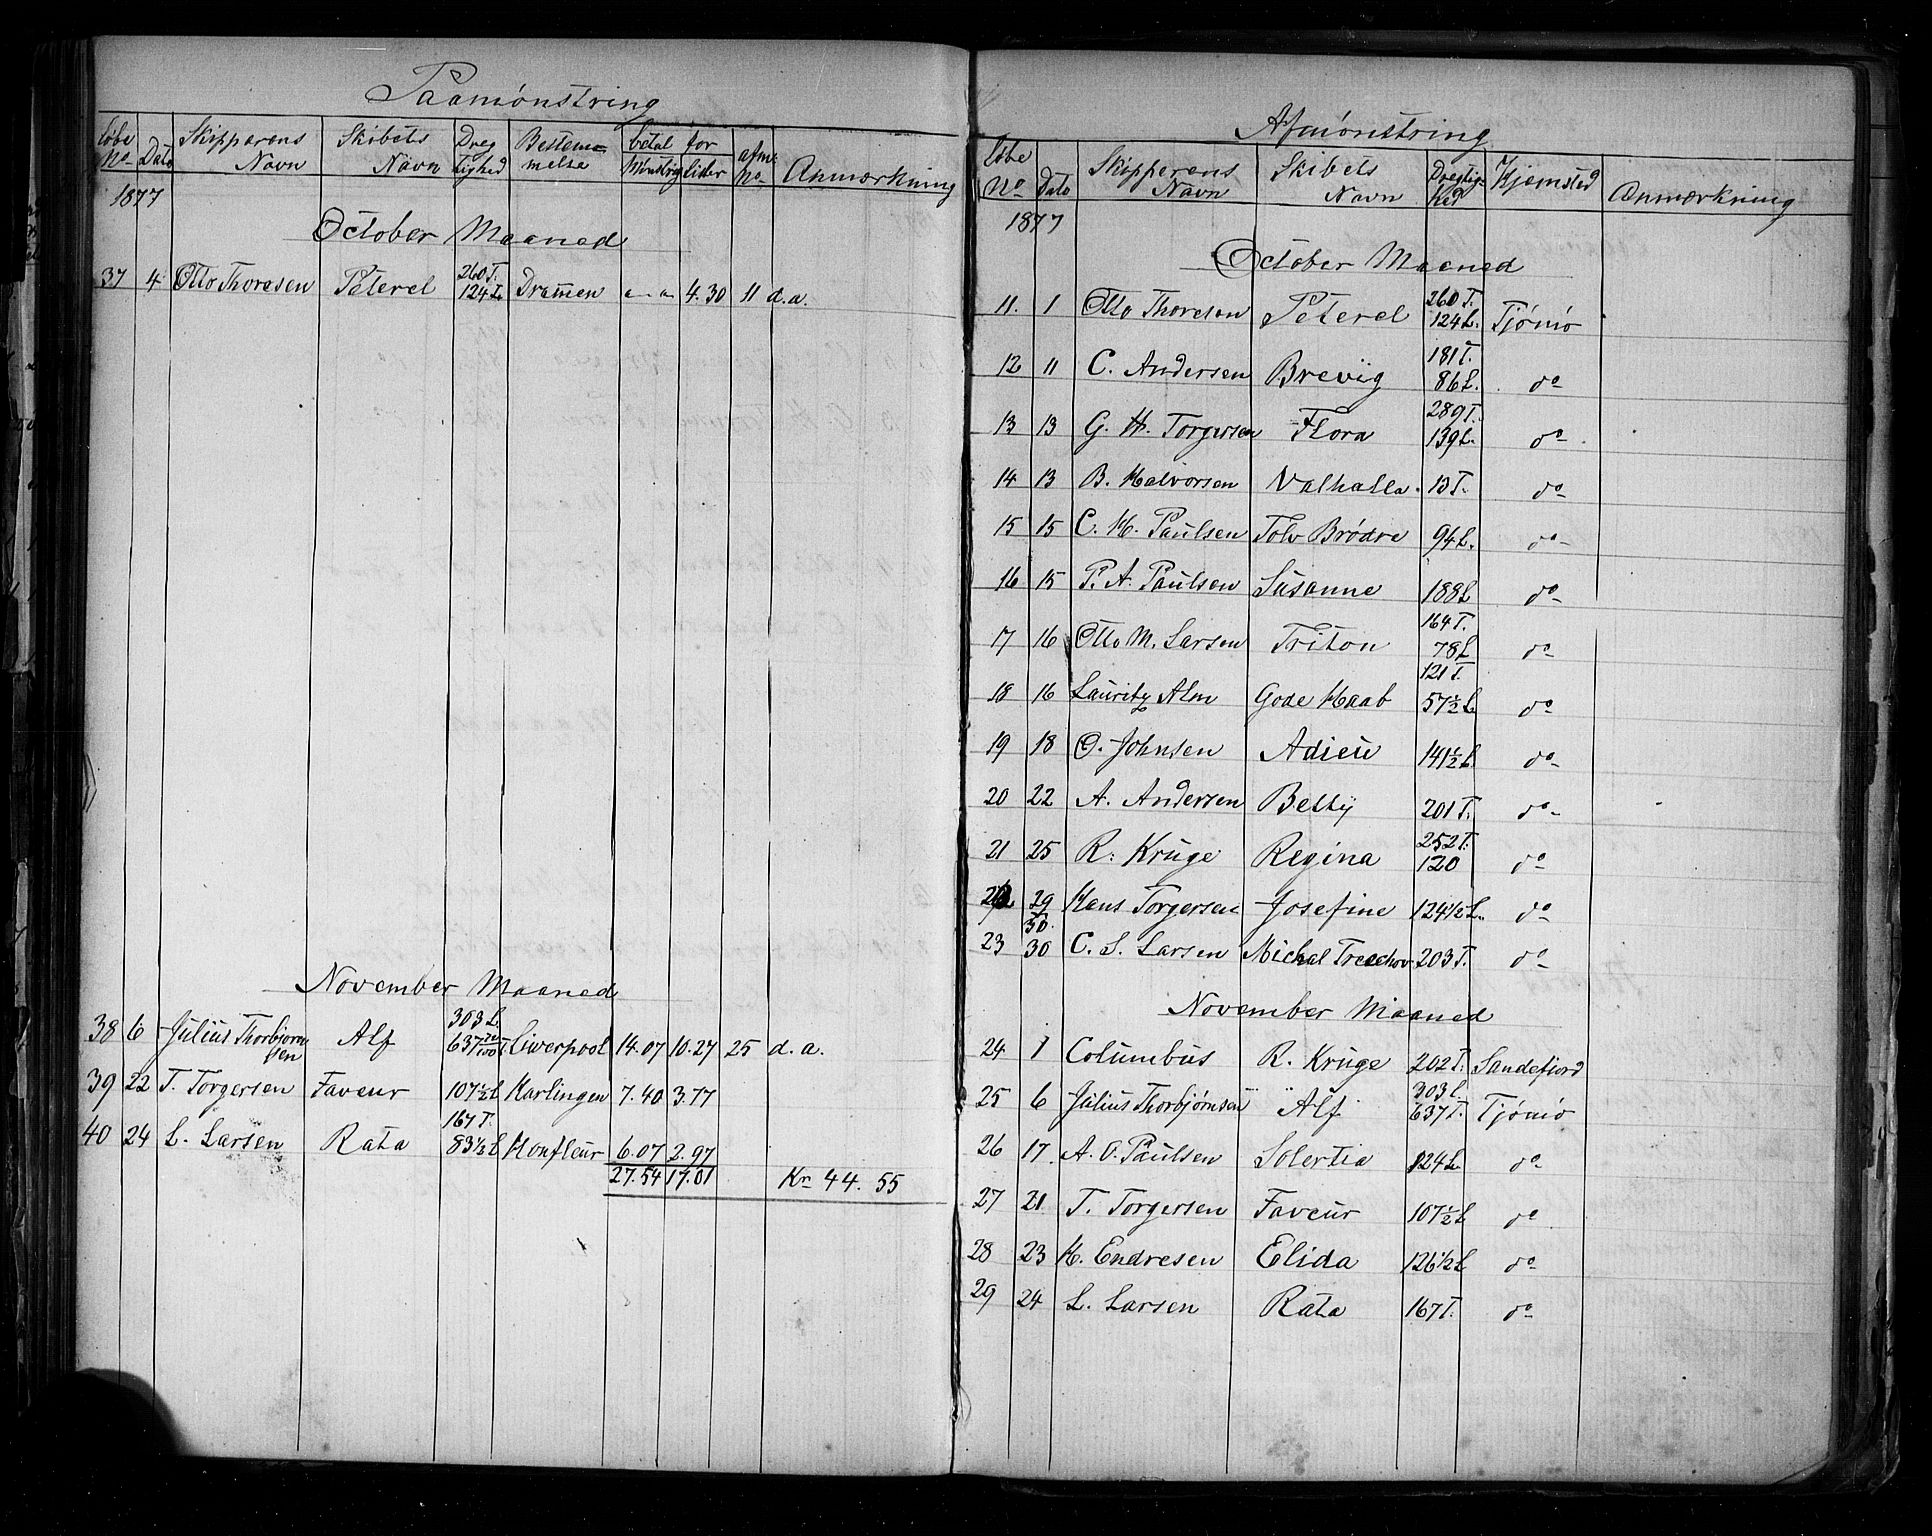 Paamønstring
Løbe No. Dato Skipperens Navn Skibets Navn Dreg tighed Bestem- melse betal for Mønstrig Lister afm: No. Anmærkning
1877
October Maaned
260 T.
37 4 Otto Thoresen Peterel 124 L. Dramen " " 4.30 11 d.a.
November Maaned
303 L.
38 6 Julius Thorbjørn sen Alf 637 70/100 T. Liverpool 14.07 10.27 25 d.a.
39 22 T. Torgersen Faveur 107½ L Harlingen 7.40 3.77
167 T.
40 24 L. Larsen Rata 83½ L Honfleur 6.07 2.97
27.54 17.01 Kr. 44.55
Afmønstring
Løbe No. Dato Skipperens Navn Skibets Navn Dregtig- hed Hjemsted Anmærkning
1877
October Maaned
260 T.
11. 1 Otto Thoresen Peterel 124 L. Tjømø
181 T.
12 11 C. Andersen Brevig 86 L. do
289 T.
13 13 G. H. Torgersen Flora 139 L. do
14 13 B. Halvorsen Valhalla 13 T. do
15 15 C. H. Paulsen Tolv Brødre 94 L. do
16 15 P. A. Paulsen Susanne 188 L do
164 T.
17 16 Otto M. Larsen Triton 78 L do
121 T.
18 16 Lauritz Alm Gode Haab 57½ L do
19 18 O. Johnsen Adieu 141½ L do
20 22 A. Andersen Betty 201 T. do
252 T.
21 25 R. Kruge Regina 120 do
22 29 30. Hans Torgersen Josefine 124½ L. do
23 30 C. S. Larsen Michal Treschov 203 T. do
November Maaned
24 1 Columbus R. Kruge 202 T. Sandefiord
303 L.
25 6 Julius Thorbjørnsen Alf 637 T. Tjømø
26 17. A. O. Paulsen Solertia 124 L. do
27 21 T. Torgersen Faveur 107½ L do
28 23 H. Endresen Elida 126½ L do
29 24 L. Larsen Rata 167 T. do